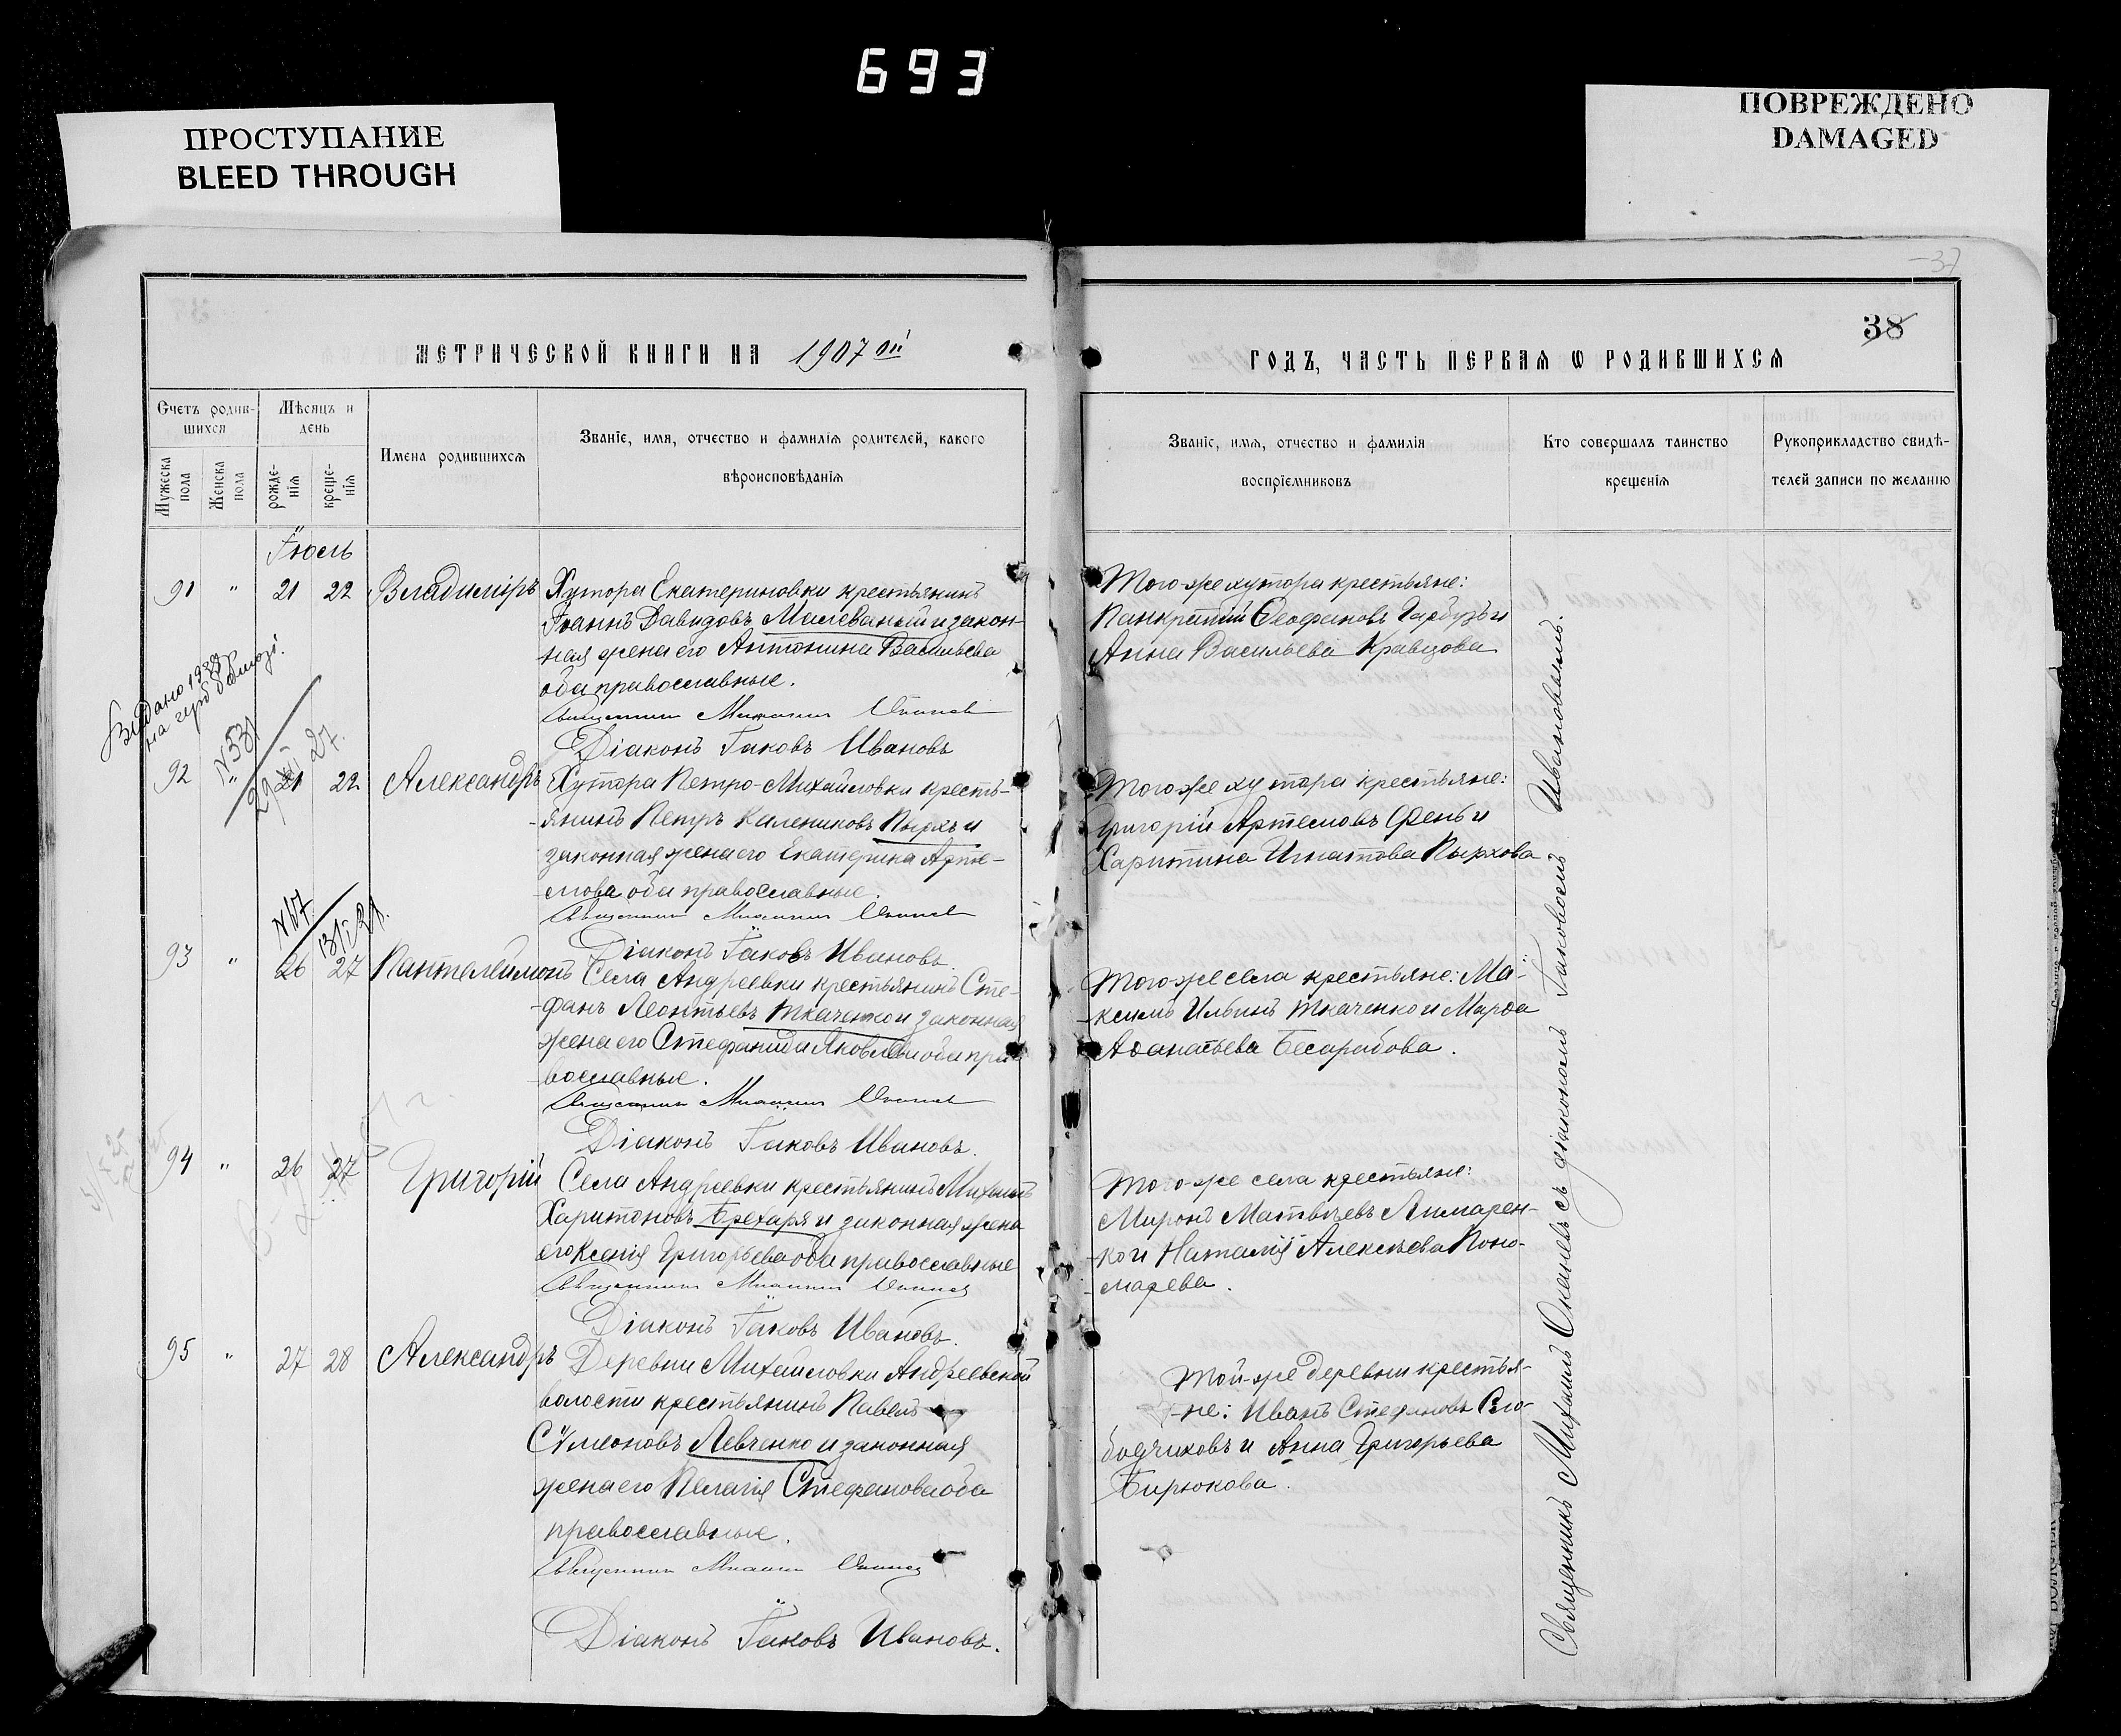 693
ПРОСТУПАНИЕ
BLEED THROUGH
ПОВРЕЖДЕНО
DAMAGED
37
38
МЕТРИЧЕСКОЙ КНИГИ НА 1907 ой
ГОДЪ, ЧАСТЬ ПЕРВАЯ Ѡ РОДИВШИХСЯ
Счетъ родив-
шихся
Мужеска пола
Женска пола
Мѣсяцъ и
день
рожде-
нія
креще-
нія
Имена родившихся
Званіе, имя, отчество и фамилія родителей, какого
вѣроисповѣданія
Званіе, имя, отчество и фамилія
воспріемниковъ
Кто совершалъ таинство
крещенія
Рукоприкладство свидѣ-
телей записи по желанію
Іюль
91 " 21 22 Владиміръ Хутора Екатериновки крестьянинъ
Іоаннъ Давидовъ Милеваный и закон-
ная жена его Антонина Васильева
оба православные.
Священникъ Михаилъ
Діаконъ Іаковъ Ивановъ
Того-же хутора крестьяне:
Панкратій Ѳеофановъ Гарбузъ и
Анна Васильева Кравцова
Видано
N531
92 " 21 22 Александръ Хутора Петро-Михайловки кресть-
янинъ Петръ Калениковъ Пырхъ и
законная жена его Екатерина Арте-
мова оба православные.
Священникъ Михаилъ
Діаконъ Іаковъ Ивановъ.
Того-же хутора крестьяне:
Григорій Артемовъ Фень и
Харитина Игнатова Пырхова
N67
93 " 26 27 Пантелеймонъ Села Андреевки крестьянинъ Сте-
фанъ Леонтьевъ Ткаченко и законная
жена его Стефанида Яковлева оба пра-
вославные.
Священникъ Михаилъ
Діаконъ Іаковъ Ивановъ.
Того-же села крестьяне: Ма-
ксимъ Ильинъ Ткаченко и Марѳа
Аѳанасьева Бесарабова.
94 " 26 27 Григорій Села Андреевки крестьянинъ Михаилъ
Харитоновъ Брехаря и законная жена
его Ксенія Григорьева оба православные
Священникъ Михаилъ
Діаконъ Іаковъ Ивановъ.
Того-же села крестьяне:
Миронъ Матвѣевъ Лимарен-
ко и Наталія Алексѣева Поно-
марева.
95 " 27 28 Александръ Деревни Михайловки Андреевской
волости крестьянинъ Павелъ
Сѵмеоновъ Левченко и законная
жена его Пелагія Стефанова оба
православные.
Священникъ Михаилъ
Діаконъ Іаковъ Ивановъ.
Той-же деревни крестья-
не: Иванъ Стефановъ Сло-
бодчиковъ и Анна Григорьева
Бирюкова.
Священникъ Михаилъ съ діакономъ Іаковомъ Ивановымъ.